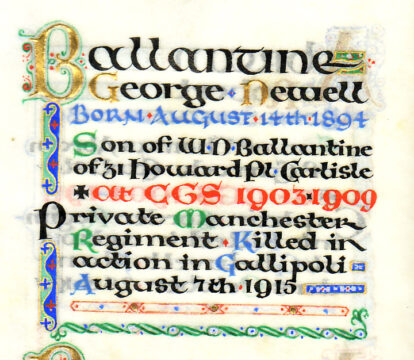 Ballantine
George · Newell
Born · August · 14th · 1894
Son of W · D · Ballantine
of 31 Howard Pl · Carlisle
✠ at CGS 1903 · 1909
Private Manchester
Regiment · Killed in
action in Gallipoli
August 7th 1915